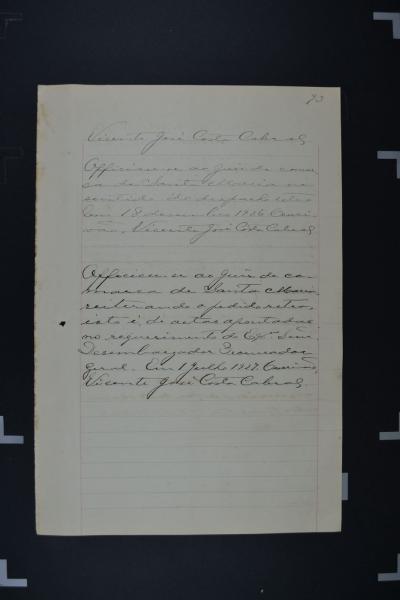 73
Vicente José Costa Cabral
Officiou-se ao Juiz de comar-
ca de Santa Maria no
sentido do despacho retro
Em 18 dezembro 1926. O escri-
vão, Vicente José Costa Cabral
Officiou-se ao Juiz de co-
marca de Santa Maria
reiterando o pedido retro,
isto é, de actos apontados
no requerimento do Exmo Snr.
Desembargador Procurador
geral. Em 1 Julho 1927. O escrivão,
Vicente José Costa Cabral